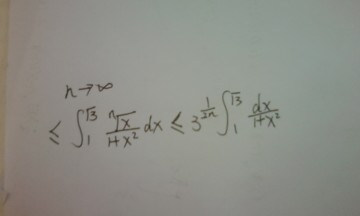 n→∞
≤ ∫₁^√3 ⁿ√x / 1+x² dx ≤ 3^(1/2n) ∫₁^√3 dx / 1+x²